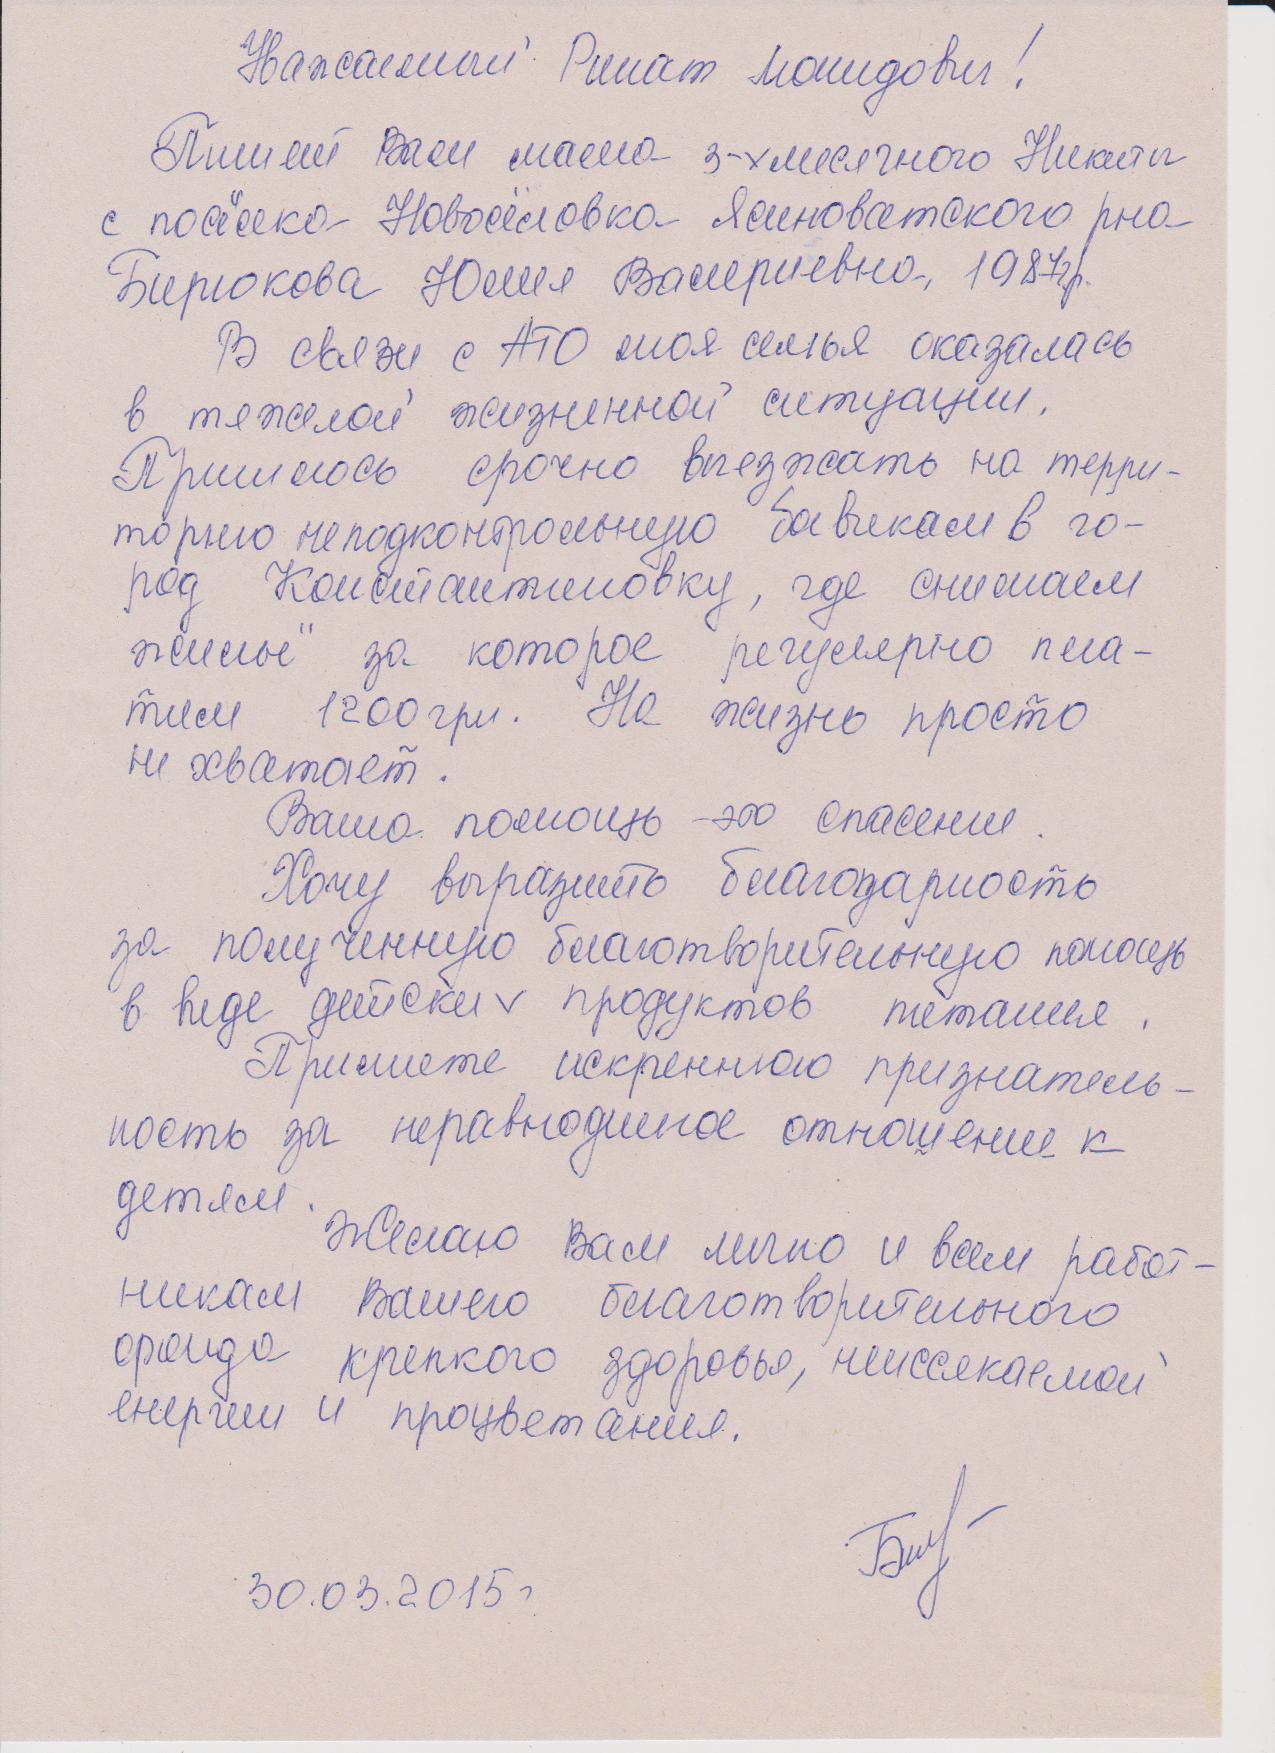 Уважаемый Ринат Леонидович!
Пишет Вам мама 3-х месячного Никиты
с посёлка Новосёловка Ясиноватского р-на
Бирюкова Юлия Валериевна, 1987г.р.
В связи с АТО моя семья оказалась
в тяжелой жизненной ситуации.
Пришлось срочно выезжать на терри-
торию неподконтрольную боевикам в го-
род Константиновку, где снимаем
жильё за которое регулярно пла-
тим 1200 грн. На жизнь просто
не хватает.
Ваша помощь - это спасение.
Хочу выразить благодарность
за полученную благотворительную помощь
в виде детских продуктов питания.
Примите искреннюю признатель-
ность за неравнодушное отношение к
детям.
Желаю Вам лично и всем работ-
никам Вашего благотворительного
фонда крепкого здоровья, неиссякаемой
енергии и процветания.
30.03.2015г